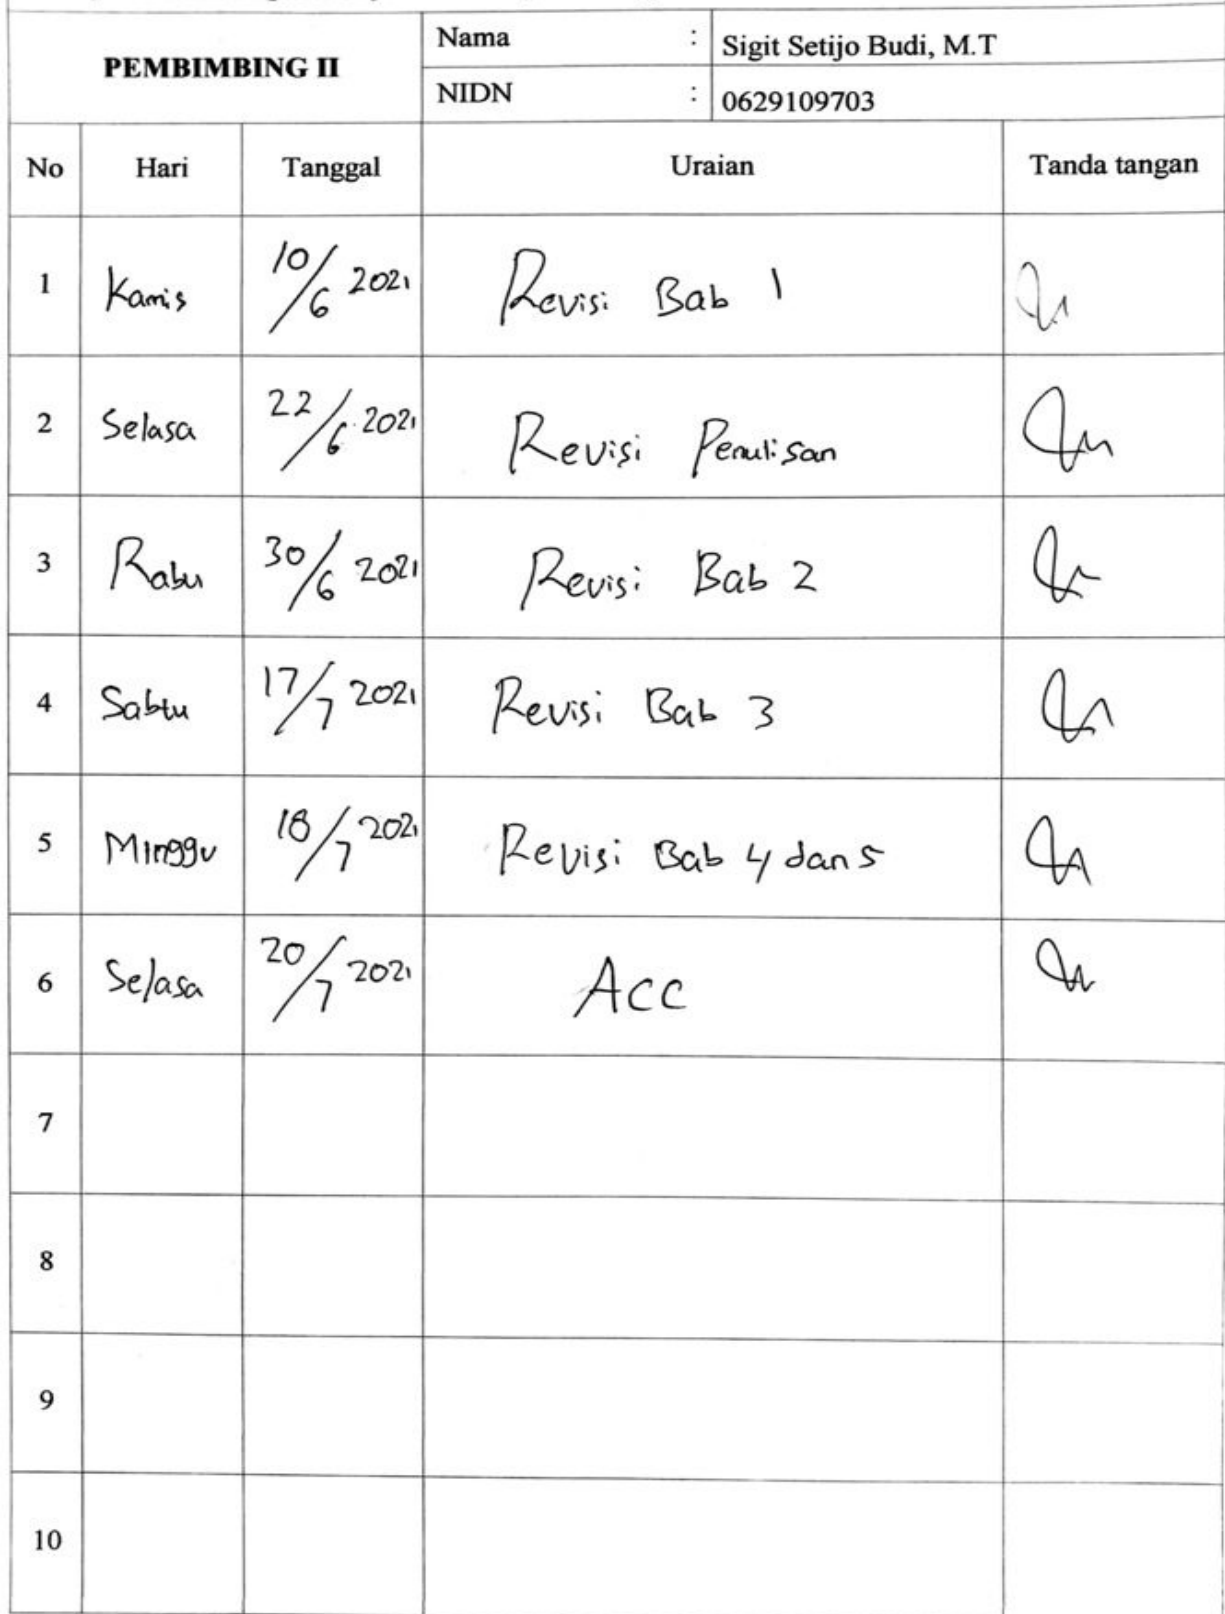 PEMBIMBING II
Nama : Sigit Setijo Budi, M.T
NIDN : 0629109703
No Hari Tanggal Uraian Tanda tangan
1 Kamis 10/6 2021 Revisi Bab 1
2 Selasa 22/6 2021 Revisi Penulisan
3 Rabu 30/6 2021 Revisi Bab 2
4 Sabtu 17/7 2021 Revisi Bab 3
5 Minggu 18/7 2021 Revisi Bab 4 dan 5
6 Selasa 20/7 2021 Acc
7
8
9
10